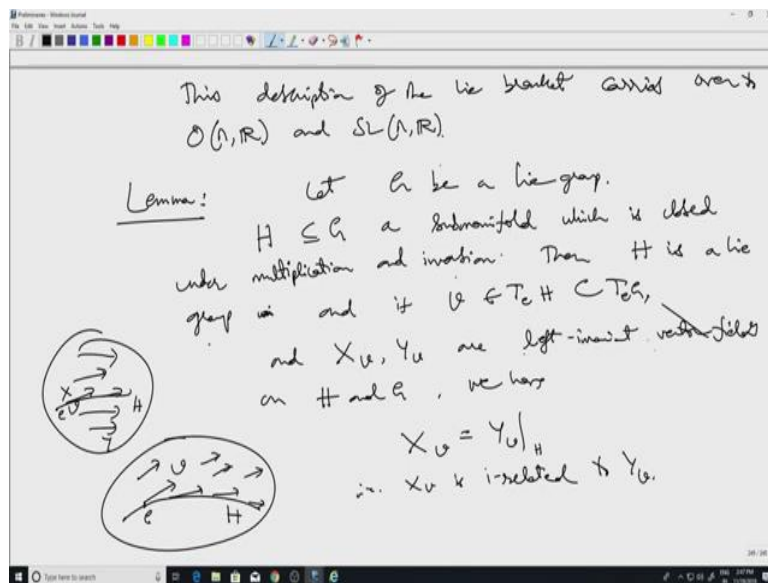 Preliminaries - Windows Journal
File Edit View Insert Actions Tools Help
This description of the Lie bracket carries over to
O(n, ℝ) and SL(n, ℝ).
Lemma: Let G be a Lie group.
H ⊆ G a submanifold which is closed
under multiplication and inversion. Then H is a Lie
group and if v ∈ TeH ⊂ TeG,
and Xv, Yv are left-invariant vector fields
on H and G, we have
Xv = Yv|H
i.e. Xv is i-related to Yv.
X
e v H
Y
v
e H
Type here to search
2:47 PM